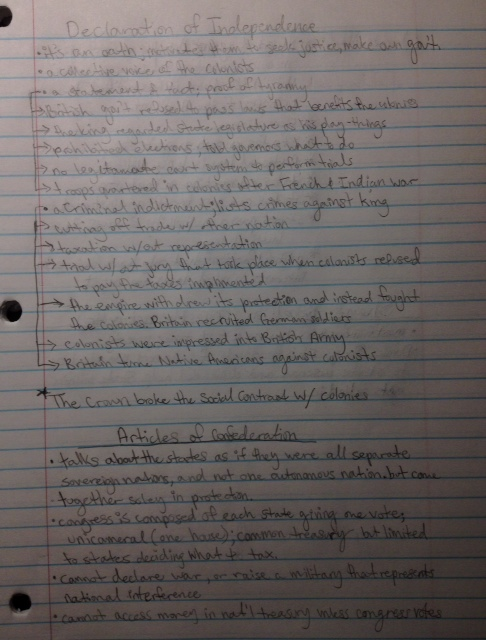 Declaration of Independence
• it's an oath; motivates them to seek justice, make own gov't.
• a collective voice of the colonists
• a statement of facts; proof of tyranny
→ British gov't refused to pass laws that benefits the
→ the king regarded state legislature as his play-things
→ prohibited elections; told governors what to do
→ no legitamate court system to perform trials
→ troops quartered in colonies after French & Indian war
• a criminal indictment; lists crimes against king
→ cutting off trade w/ other nation
→ taxation w/out representation
→ trial w/out jury that took place when colonists refused
to pay the taxes implimented
→ the empire withdrew its protection and instead fought
the colonies. Britain recruited German soldiers
→ colonists were impressed into British Army
→ Britain turne Native Americans against colonists
* The Crown broke the Social Contract w/ colonies
Articles of Confederation
• talks about the states as if they were all separate
sovereign nations, and not one autonomous nation, but come
together soley in protection.
• congress is composed of each state giving one vote;
unicameral (one house); common treasury but limited
to states deciding what to tax.
• cannot declare war, or raise a military that represents
national interference
• cannot access money in nat'l treasury unless congress votes